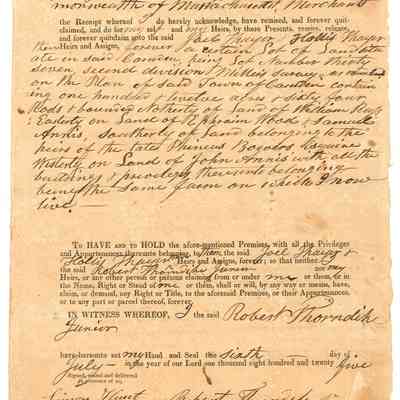 monwealth of Massachusetts Merchant
the Receipt whereof I do hereby acknowledge, have remised, released, and forever quit-
claimed, and do for my self and my Heirs, by these Presents, remise, release,
and forever quitclaim unto the said Joel Thayer & Hollis Thayer
their Heirs and Assigns, forever a certain Lot of Land situ
ate in said Camden, being Lot Number thirty
seven, second division Millers survey, as
on the Plan of said Town of Camden contain
ing one hundred & twelve acres & sixty four
Rods & bounded Northerly of Land of William
Easterly on Land of Ephraim Wood & Samuel
Annis, southerly of Land belonging to the
heirs of the late Phineus Esquire
Westerly on Land of John Annis with all the
buildings & priviledges thereunto belonging
being the same farm on which I now
live.
To HAVE AND TO HOLD the afore-mentioned Premises, with all the Privileges
and Appurtenances thereunto belonging, to them the said Joel Thayer &
Hollis Thayer Heirs and Assigns, forever; so that neither I
the said Robert Thorndike Junior nor my
Heirs, or any other person or persons claiming from or under me or them, or in
the Name, Right or Stead of me or them, shall or will, by any way or means, have,
claim, or demand, any Right or Title, to the aforesaid Premises, or their Appurtenances,
or to any part or parcel thereof, forever.
IN WITNESS WHEREOF, I the said Robert Thorndike
Junior
have hereunto set my Hand and Seal this sixth day of
July in the year of our Lord one thousand eight hundred and twenty five
Signed, sealed and delivered
in presence of us,
Simon Hunt Robert Thorndike Jr